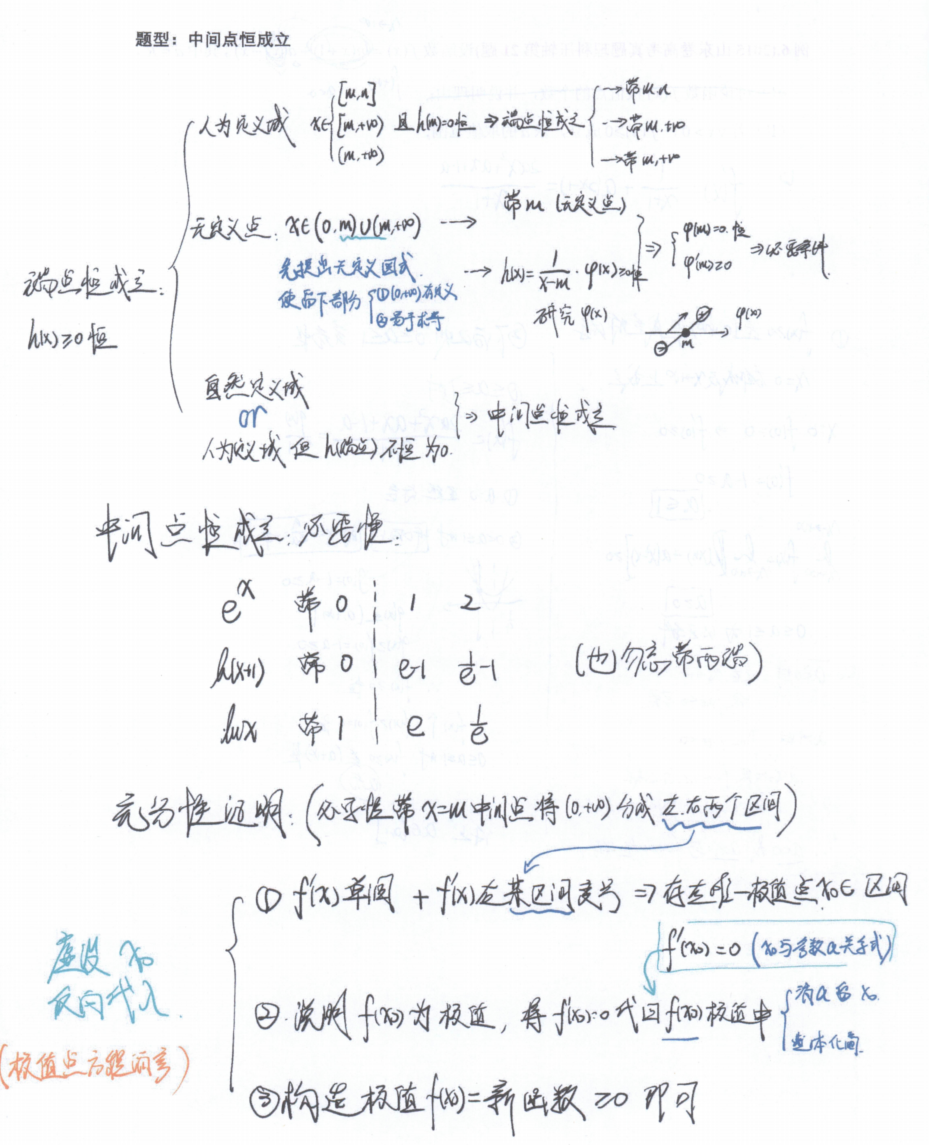 题型：中间点恒成立
端点恒成立：
h(x)≥0恒
人为定义域 x∈ { [m,n] [m,+∞) (m,+∞) 且 h(m)=0恒 ⇒端点恒成立 { →带m,n →带m,+∞ →带m,+∞
无定义点：x∈(0,m)∪(m,+∞) → 带m（无定义点）
先提出无定义因式
使留下部分 { ①(0,+∞)有定义 ②易于求导
→ h(x)=1/(x-m)·φ(x)≥0恒 ⇒ { φ(m)=0恒 φ'(m)≥0 ⇒必要条件
研究φ(x)
⊖ m ⊕ φ(x)
自然定义域
or
人为定义域但h(端点)不恒为0.
} ⇒ 中间点恒成立
中间点恒成立：必要性
e^x 带 0 1 2
ln(x+1) 带 0 e-1 1/e-1 （也勿忘带两端）
lnx 带 1 e 1/e
充分性证明：（必要性带x=m中间点将(0,+∞)分成左.右两个区间）
① f'(x)单调 + f'(x)在某区间变号 ⇒ 存在唯一极值点x₀∈区间
f'(x₀)=0（x₀与参数a关系式）
虚设x₀
反向代入
（极值点方程消参）
②.说明f(x₀)为极值，将f'(x₀)=0代回f(x₀)极值中 { 消a留x₀ 整体化简
③构造极值f(x₀)=新函数≥0即可